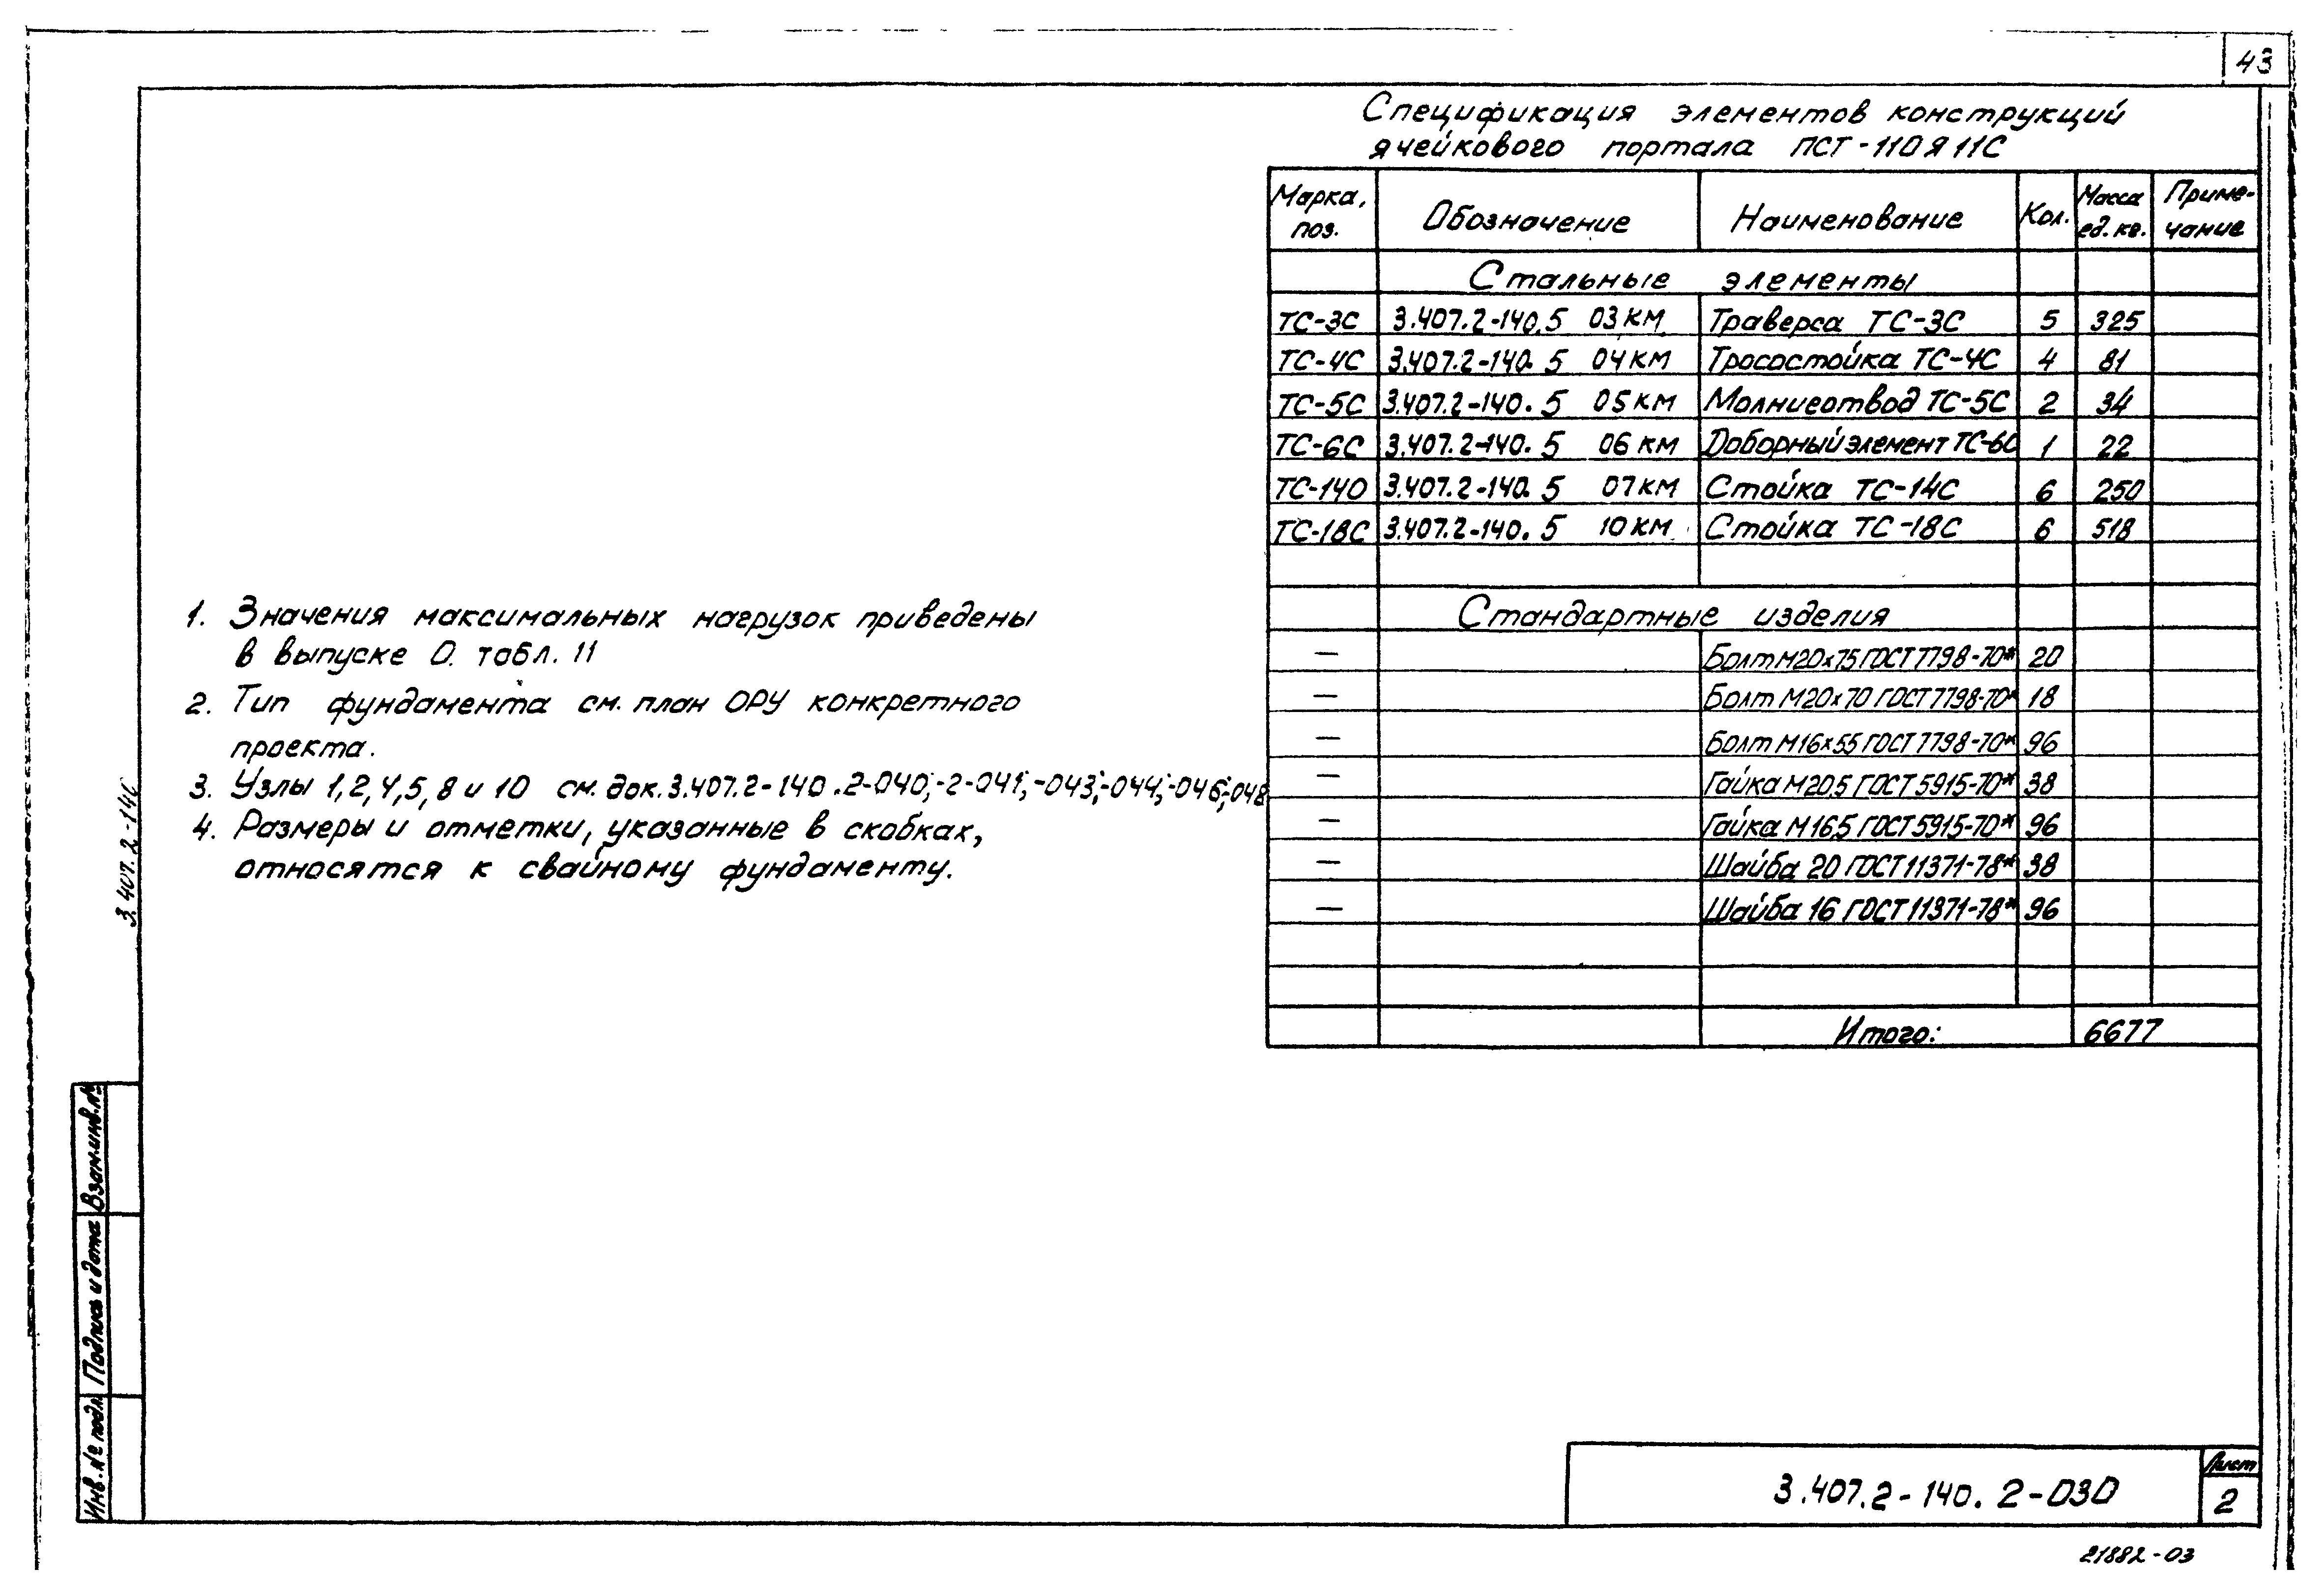 43
Спецификация элементов конструкций
ячейкового портала ПСТ-110Я11С
Марка, поз. Обозначение Наименование Кол. Масса ед. кг. Примечание
Стальные элементы
ТС-3С 3.407.2-140.5 03КМ Траверса ТС-3С 5 325
ТС-4С 3.407.2-140.5 04КМ Тросостойка ТС-4С 4 81
ТС-5С 3.407.2-140.5 05КМ Молниеотвод ТС-5С 2 34
ТС-6С 3.407.2-140.5 06КМ Доборный элемент ТС-6С 1 22
ТС-140 3.407.2-140.5 07КМ Стойка ТС-14С 6 250
ТС-18С 3.407.2-140.5 10КМ Стойка ТС-18С 6 518
Стандартные изделия
— Болт М20х75 ГОСТ 7798-70* 20
— Болт М20х70 ГОСТ 7798-70* 18
— Болт М16х55 ГОСТ 7798-70* 96
— Гайка М20.5 ГОСТ 5915-70* 38
— Гайка М16.5 ГОСТ 5915-70* 96
— Шайба 20 ГОСТ 11371-78* 38
— Шайба 16 ГОСТ 11371-78* 96
Итого: 6677
1. Значения максимальных нагрузок приведены
в выпуске 0. табл. 11
2. Тип фундамента см. план ОРУ конкретного
проекта.
3. Узлы 1,2,4,5,8 и 10 см. док. 3.407.2-140.2-040;-2-041;-043;-044;-046;-048
4. Размеры и отметки, указанные в скобках,
относятся к свайному фундаменту.
3.407.2-140
Взам.инв.№
Подпись и дата
Инв.№ подл.
3.407.2-140.2-030
Лист
2
21882-03